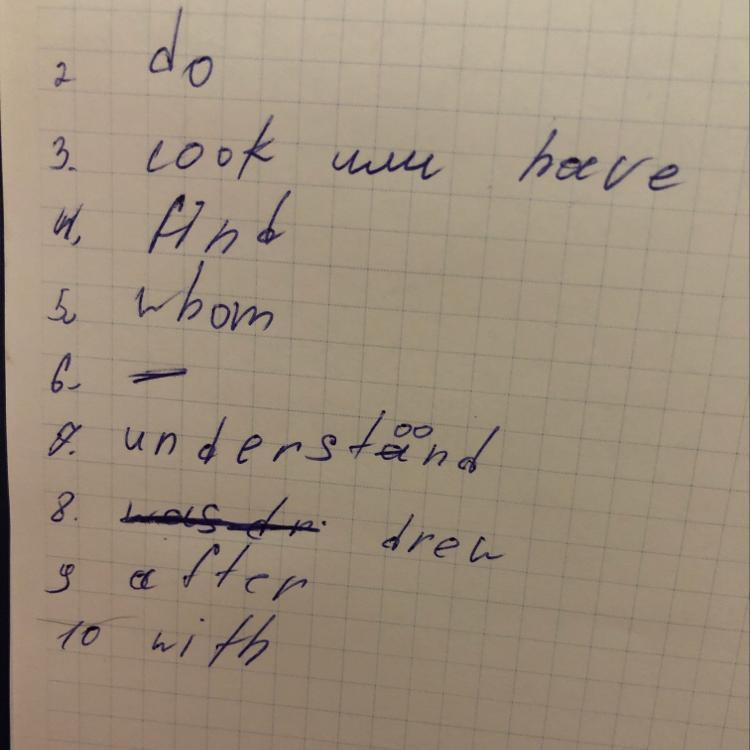 2 do
3. cook или have
4. find
5. whom
6. —
7. understand oo
8. was dr. drew
9 after
10 with